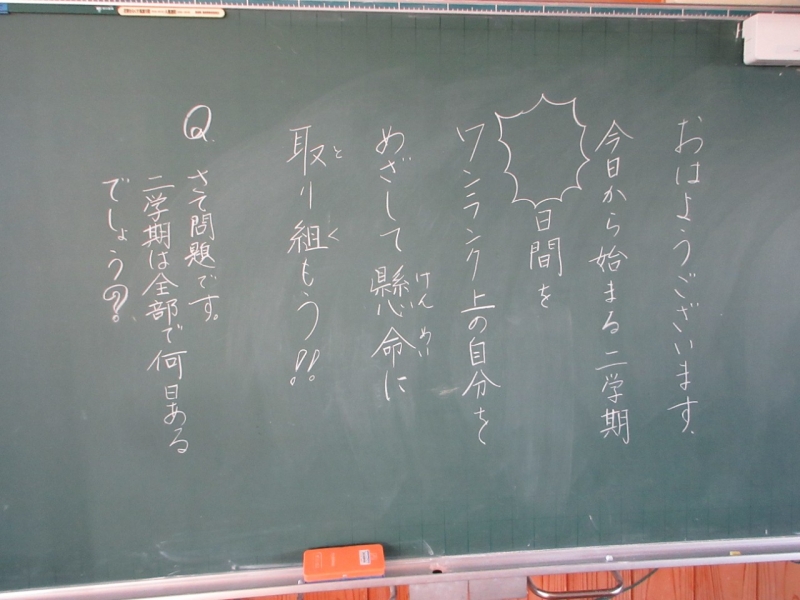 おはようございます.
今日から始まる二学期
日間を
ワンランク上の自分を
めざして懸命に
けんめい
取り組もう!!
と
く
Q.
さて問題です。
二学期は全部で何日ある
でしょう?